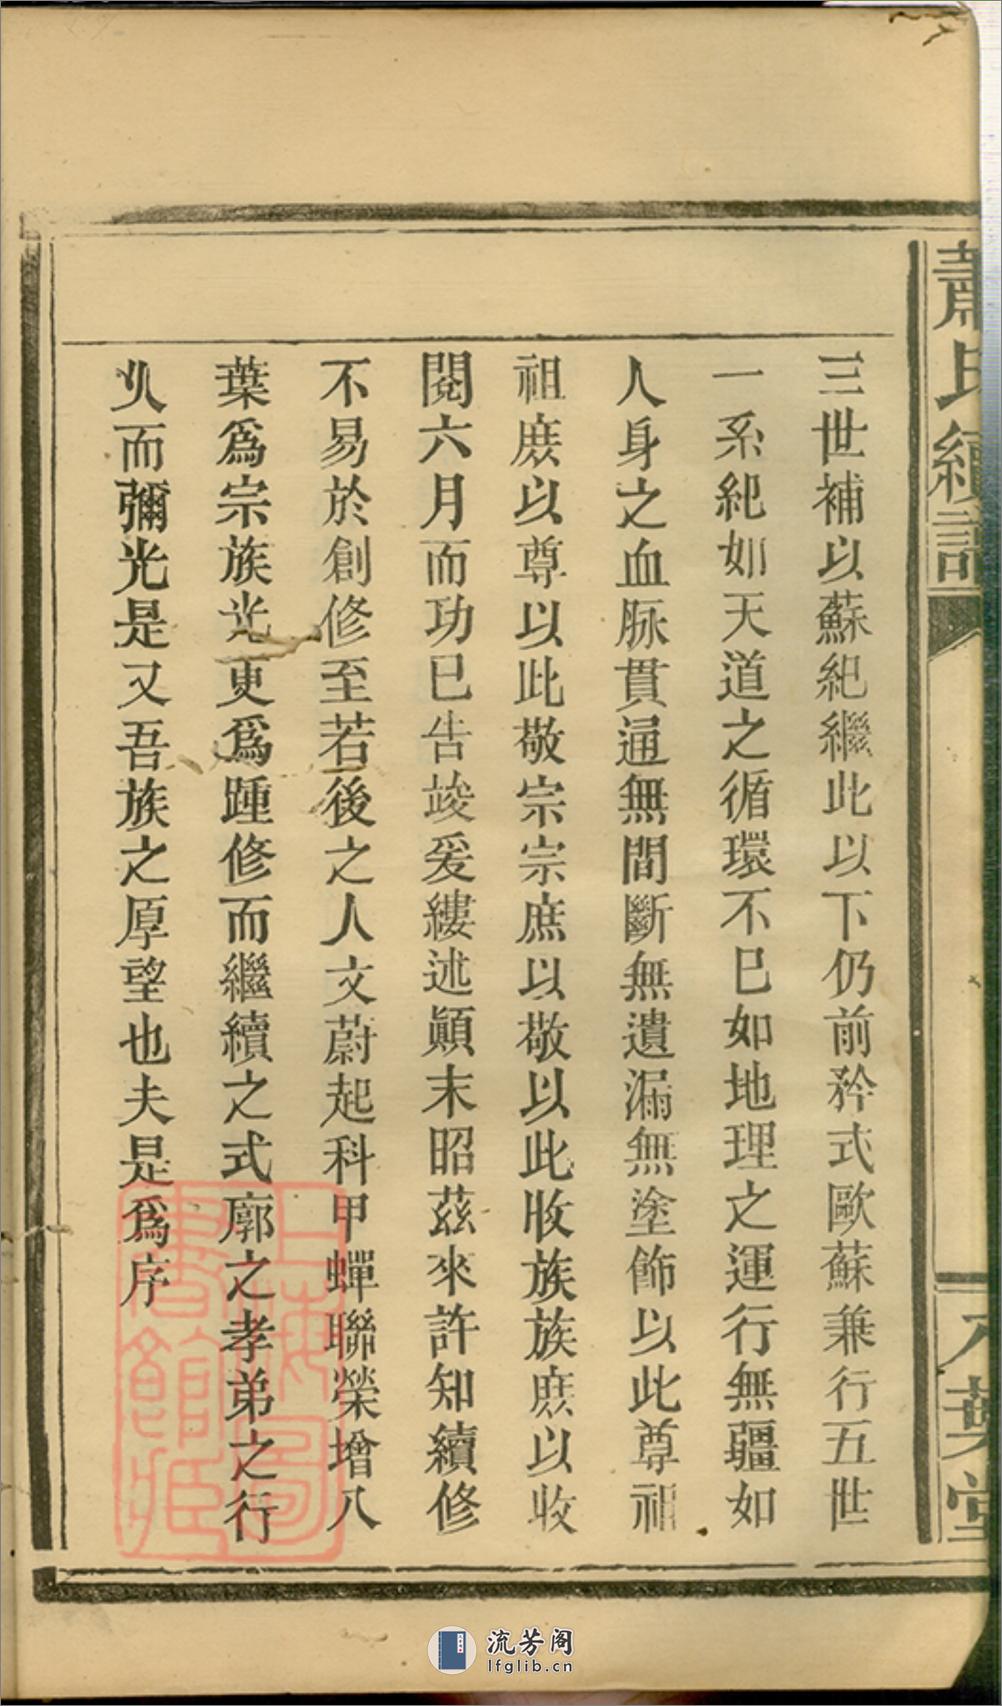 蕭氏續譜
八葉堂
三世補以蘇紀繼此以下仍前矜式歐蘇兼行五世
一系紀如天道之循環不已如地理之運行無疆如
人身之血脉貫通無間斷無遺漏無塗飾以此尊祖
祖庻以尊以此敬宗宗庶以敬以此收族族庻以收
閱六月而功已告竣爰縷述顚末昭茲來許知續修
不易於創修至若後之人文蔚起科甲蟬聯榮增八
葉爲宗族光更爲踵修而繼續之式廓之孝弟之行
乆而彌光是又吾族之厚望也夫是爲序
上海圖
書館藏
流芳阁
lfglib.cn